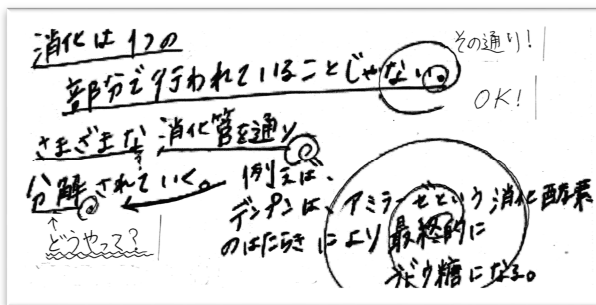 消化は1つの
部分で行われていることじゃない。
その通り!
OK!
さまざまな消化管を通り
分解されていく。
どうやって?
例えば、
デンプンは、アミラーゼという消化酵素
のはたらきにより最終的に
ブドウ糖になる。